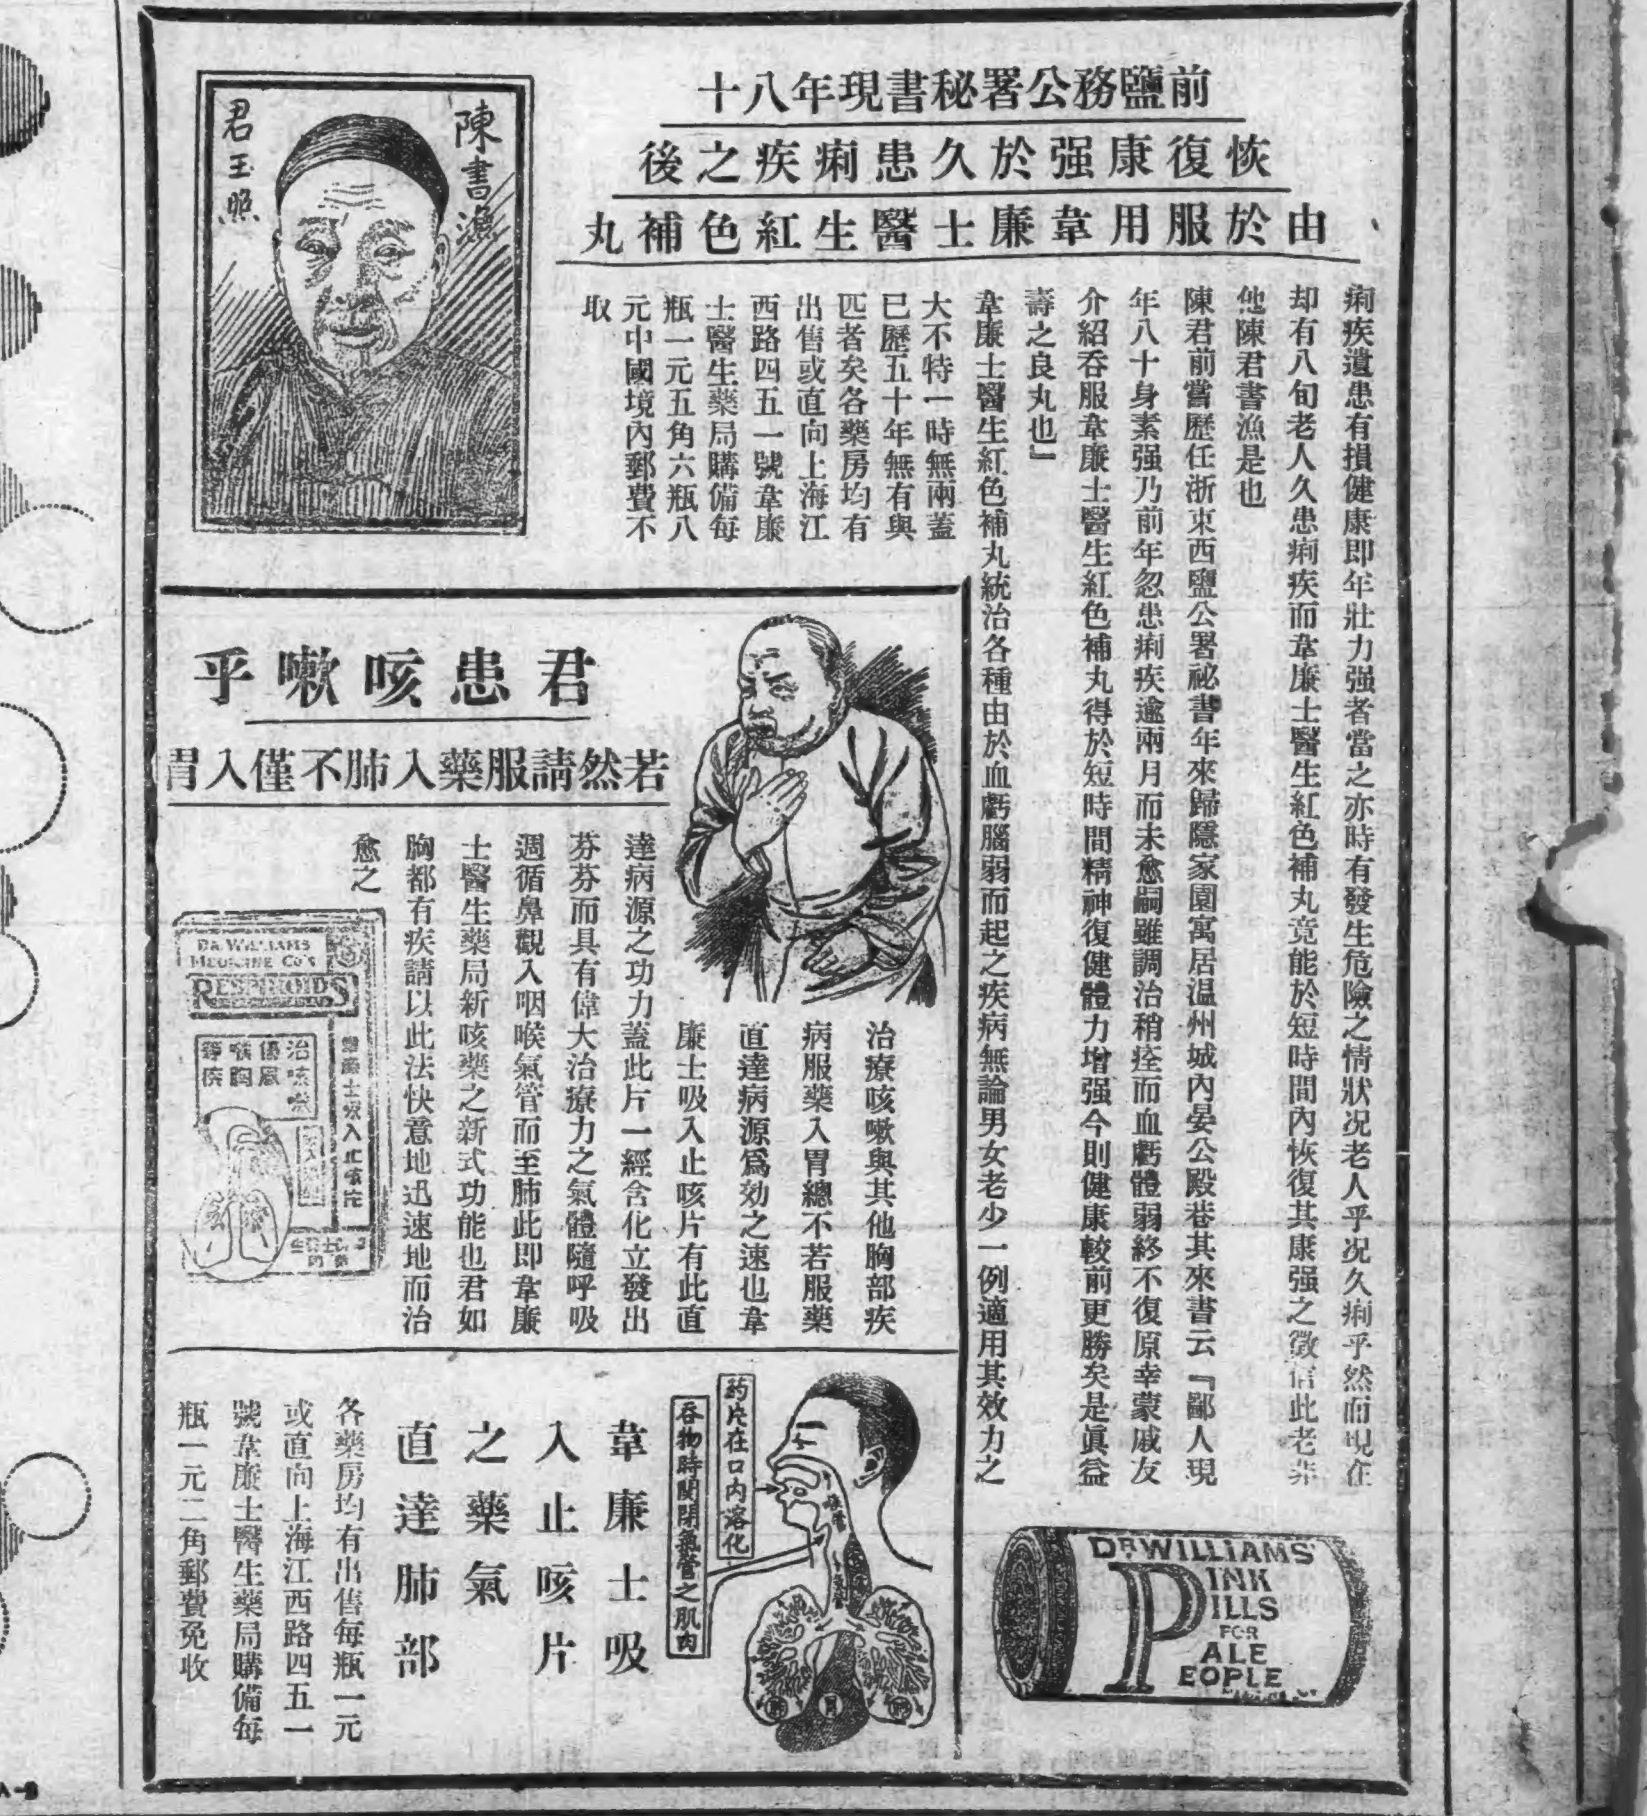 前鹽務公署秘書現年八十
恢復康强於久患痢疾之後
由於服用韋廉士醫生紅色補丸
陳書漁
君玉照
痢疾遺患有損健康即年壯力强者當之亦時有發生危險之情狀况老人乎况久痢乎然而現在
却有八旬老人久患痢疾而韋廉士醫生紅色補丸竟能於短時間內恢復其康强之徵信此老非
他陳君書漁是也
陳君前嘗歷任浙東西鹽公署祕書年來歸隱家園寓居温州城內晏公殿巷其來書云『鄙人現
年八十身素强乃前年忽患痢疾逾兩月而未愈嗣雖調治稍痊而血虧體弱終不復原幸蒙戚友
介紹吞服韋廉士醫生紅色補丸得於短時間精神復健體力增强今則健康較前更勝矣是眞益
壽之良丸也』
韋廉士醫生紅色補丸統治各種由於血虧腦弱而起之疾病無論男女老少一例適用其效力之
大不特一時無兩蓋
已歷五十年無有與
匹者矣各藥房均有
出售或直向上海江
西路四五一號韋廉
士醫生藥局購備每
瓶一元五角六瓶八
元中國境內郵費不
取
DR. WILLIAMS'
PINK
PILLS
FOR
PALE
PEOPLE
君患咳嗽乎
若然請服藥入肺不僅入胃
治療咳嗽與其他胸部疾
病服藥入胃總不若服藥
直達病源爲効之速也韋
廉士吸入止咳片有此直
達病源之功力蓋此片一經含化立發出
芬芬而具有偉大治療力之氣體隨呼吸
週循鼻觀入咽喉氣管而至肺此即韋廉
士醫生藥局新咳藥之新式功能也君如
胸都有疾請以此法快意地迅速地而治
愈之
DR. WILLIAMS
MEDICINE CO'S
RESPIROIDS
韋廉士吸入止咳片
治咳嗽
傷風
喉胸
等疾
药片在口內溶化
吞物時関閉氣管之肌肉
肺
胃
肺
韋廉士吸
入止咳片
之藥氣
直達肺部
各藥房均有出售每瓶一元
或直向上海江西路四五一
號韋廉士醫生藥局購備每
瓶一元二角郵費免收